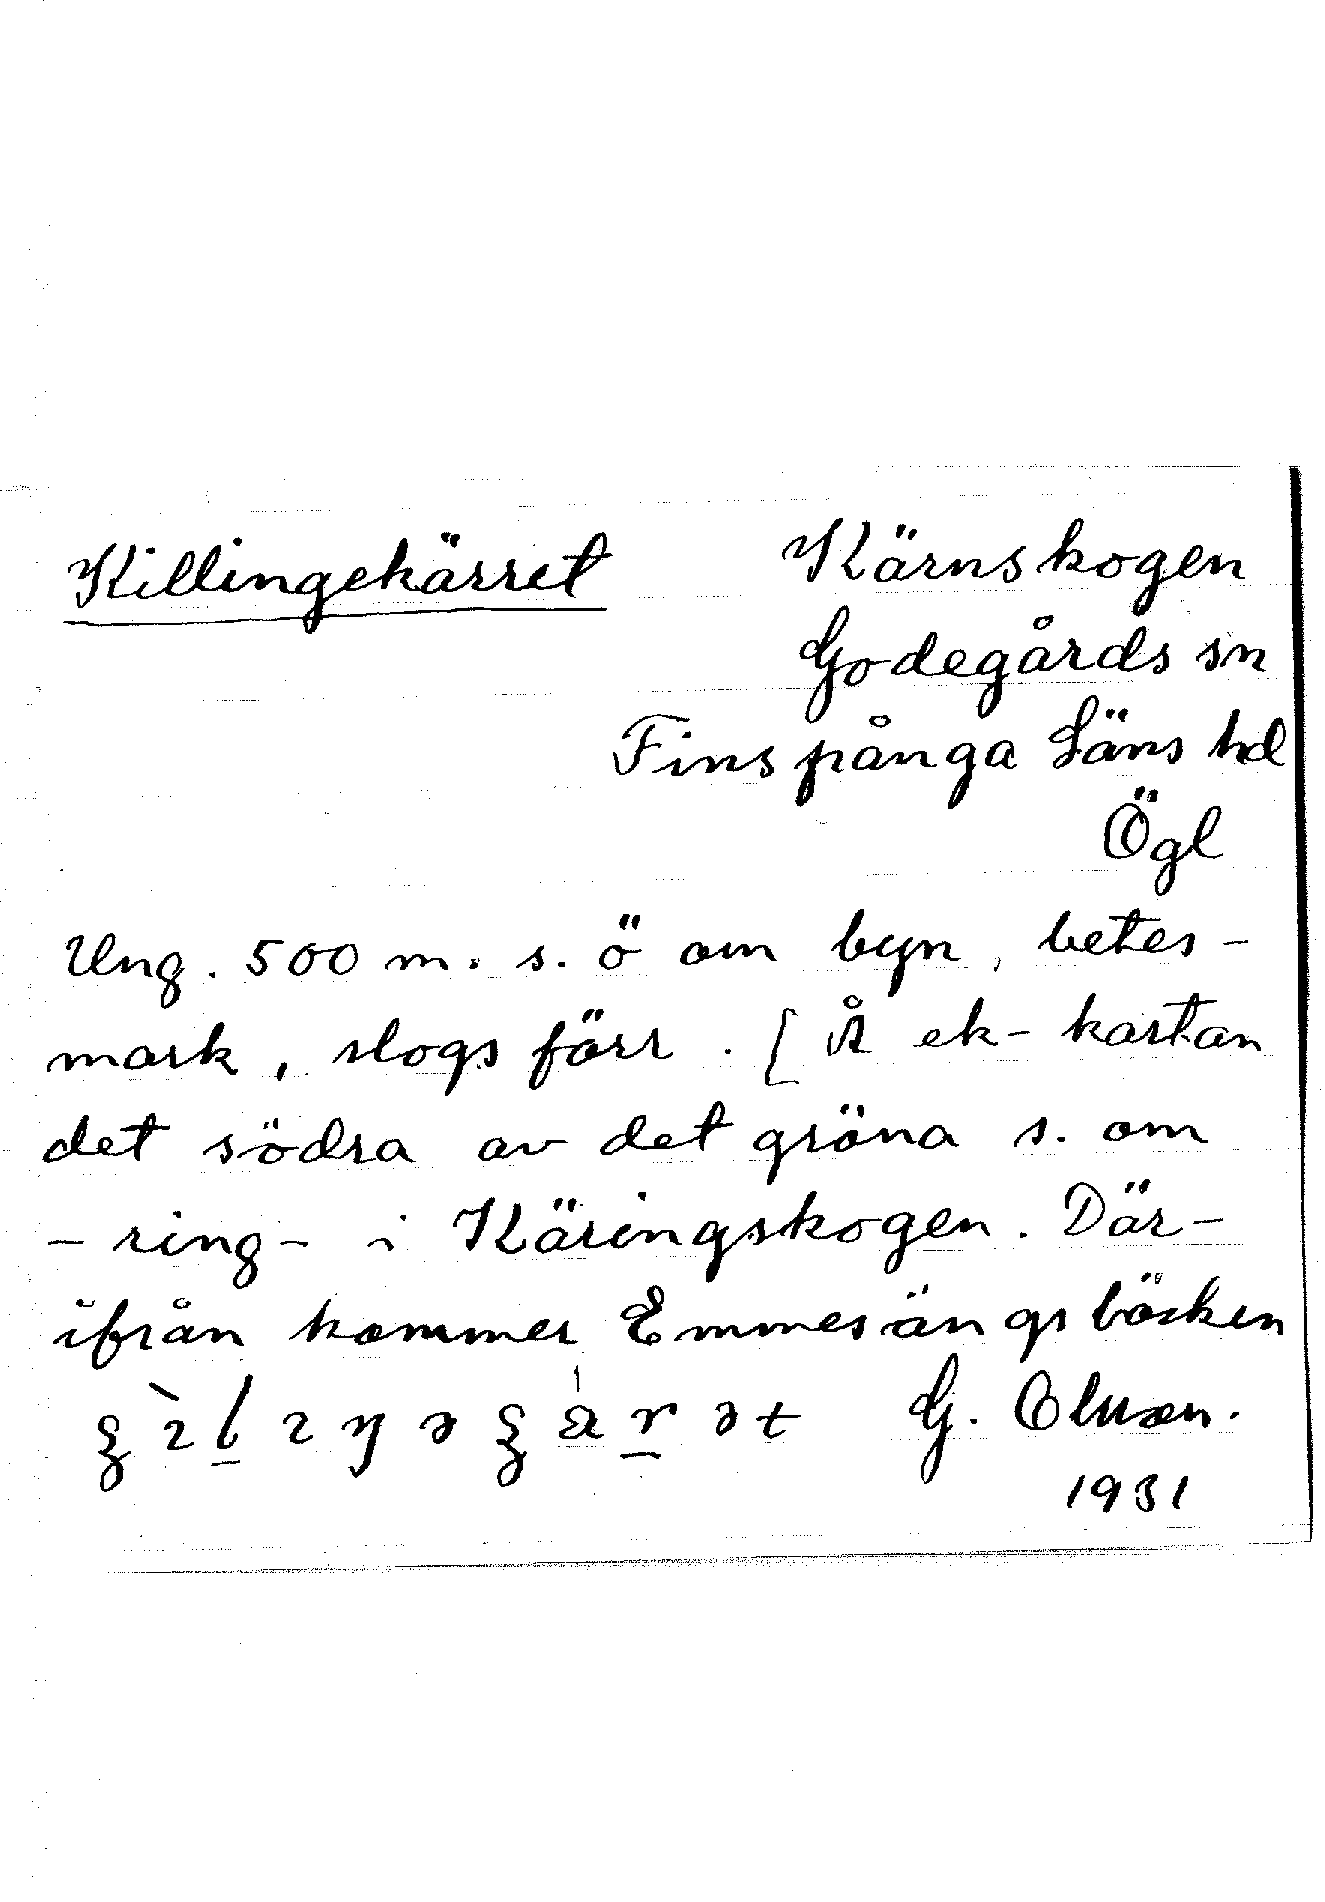 Killingekärret
Kärnskogen
Godegårds sn
Finspånga Läns hd
Ögl
Ung. 500 m. s. ö om byn, betes-
mark, slogs förr. [Å ek-kartan
det södra av det gröna s. om
-ring- i Käringskogen. Där-
ifrån kommer Emmesängsbäcken
G.
1931